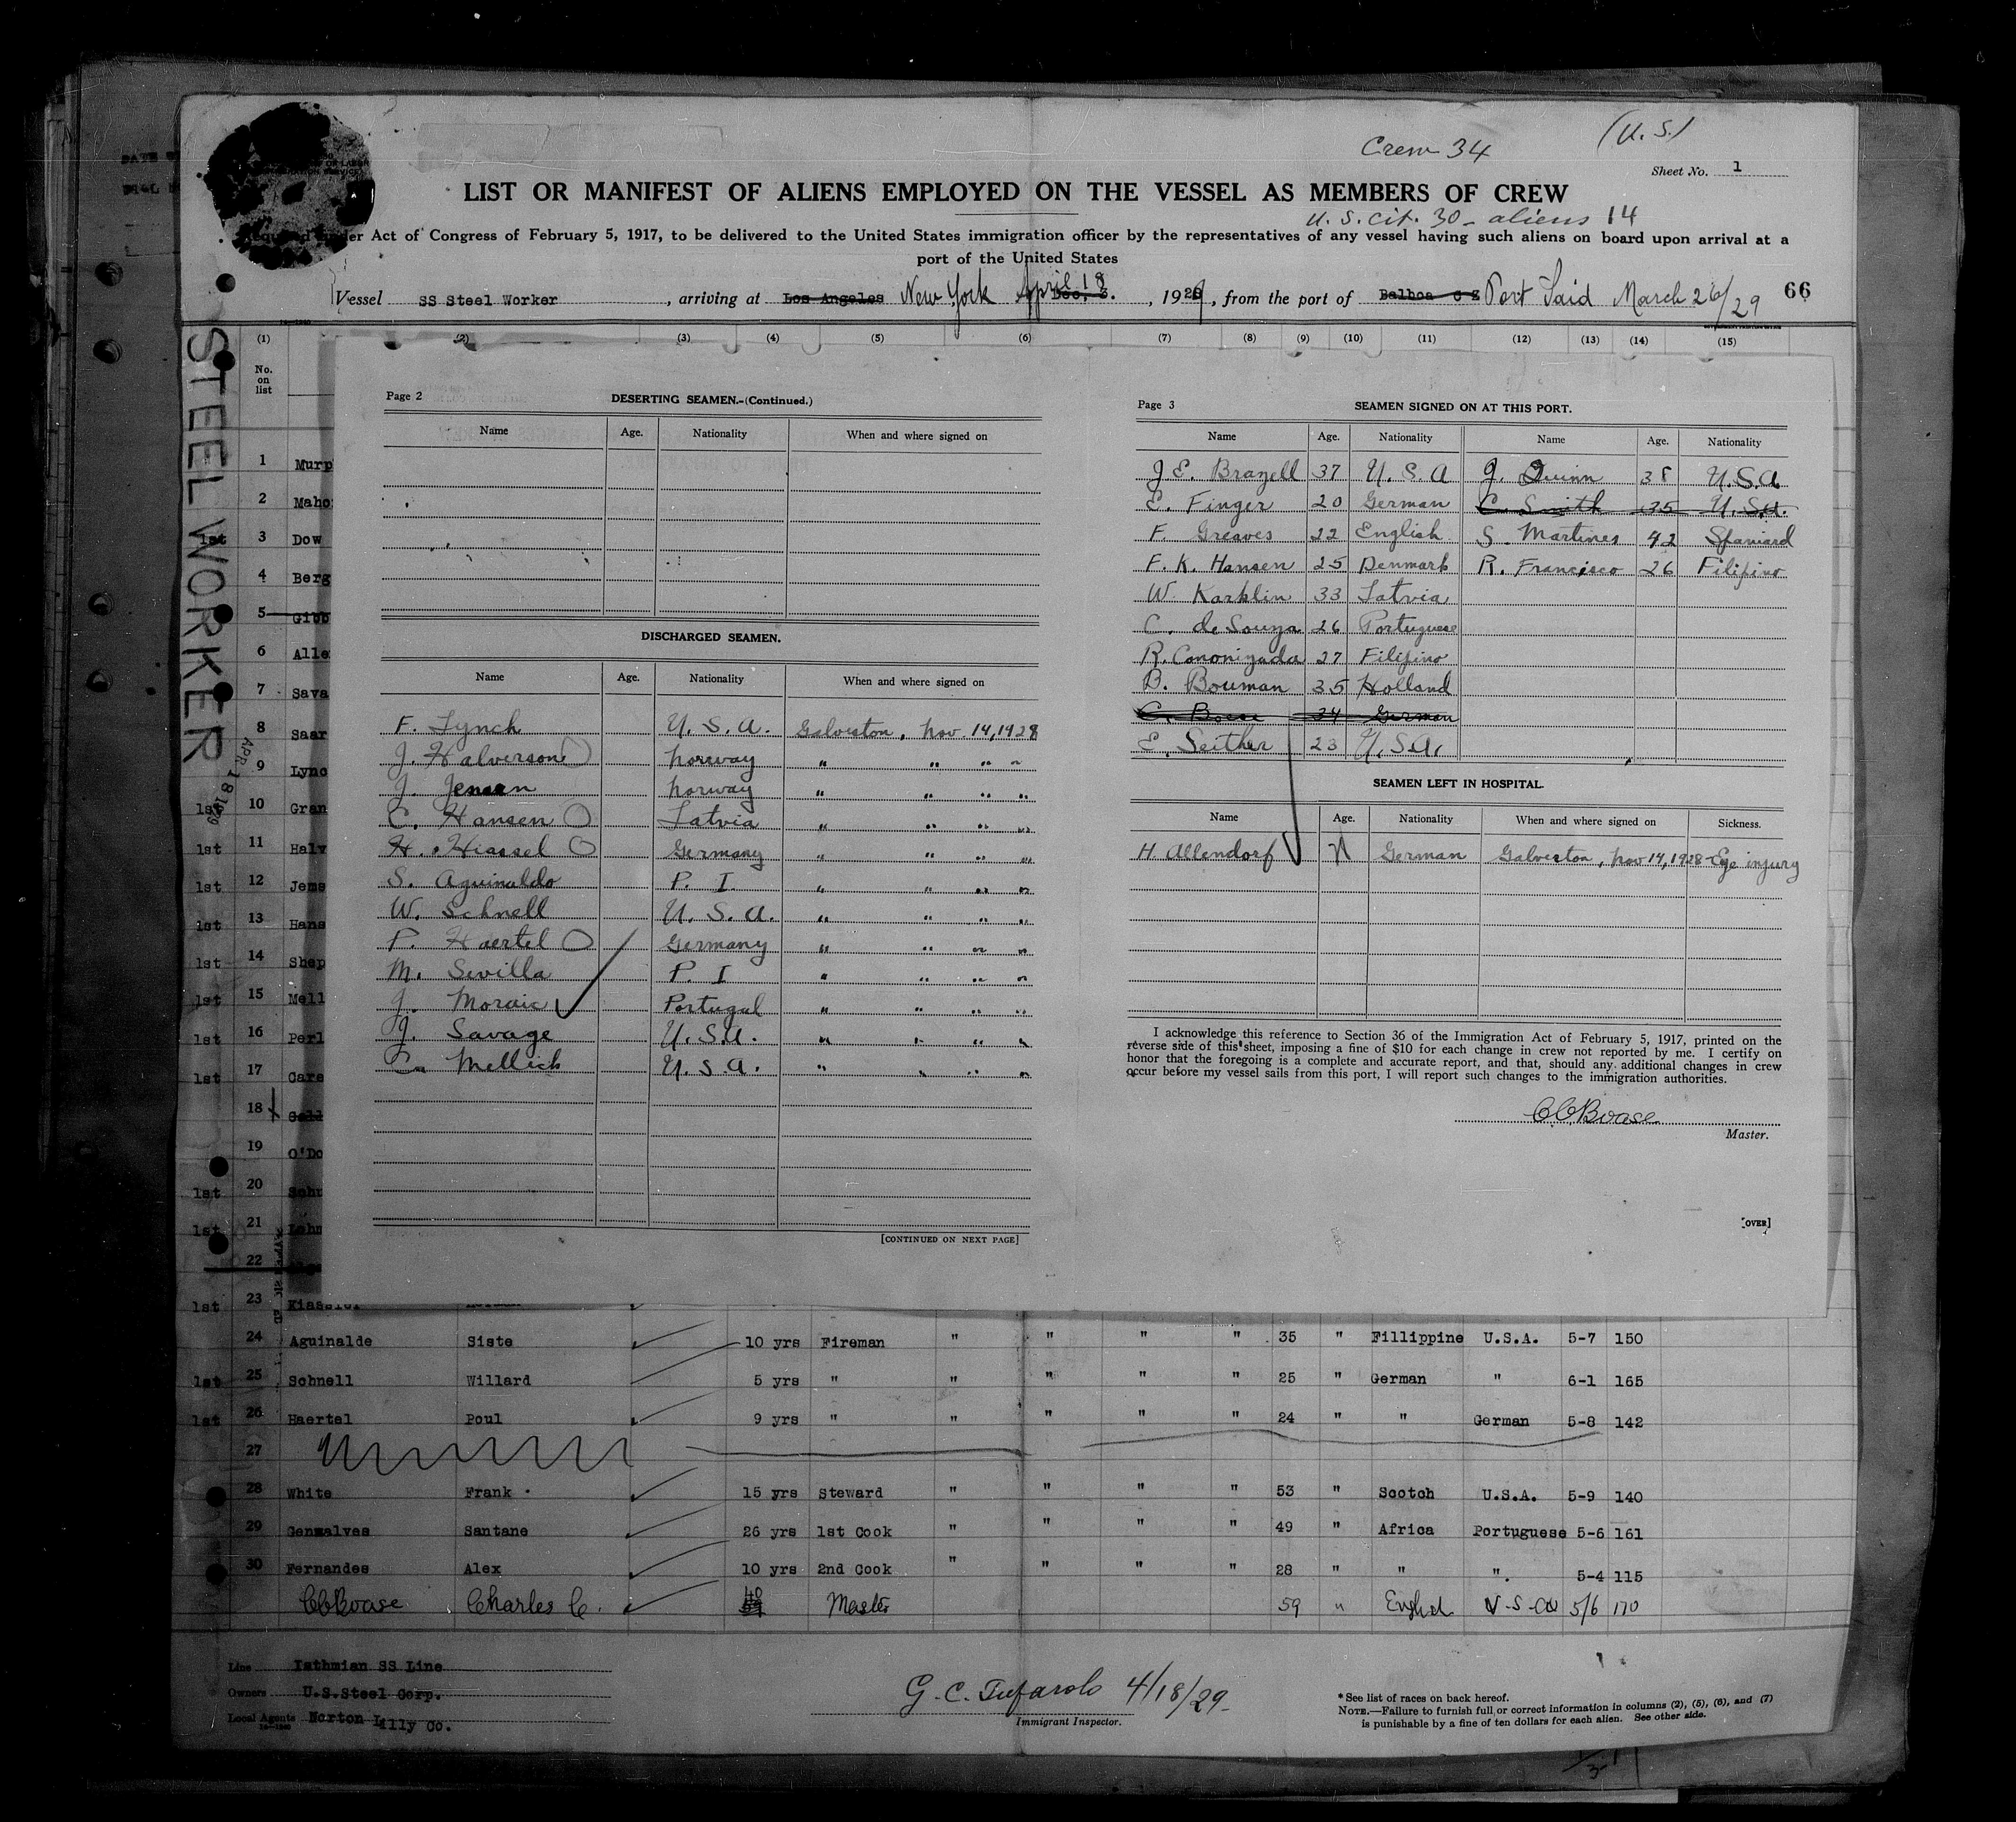 Crew 34
(U.S.)
Sheet No. 1
LIST OR MANIFEST OF ALIENS EMPLOYED ON THE VESSEL AS MEMBERS OF CREW
U.S. Cit. 30 - aliens 14
Act of Congress of February 5, 1917, to be delivered to the United States immigration officer by the representatives of any vessel having such aliens on board upon arrival at a
port of the United States
Vessel SS Steel Worker, arriving at Los Angeles New York April 18, 1929, from the port of Balboa C Z Port Said March 26/29
66
STEEL WORKER
APR 18 1929
(1) (2) (3) (4) (5) (6) (7) (8) (9) (10) (11) (12) (13) (14) (15)
No. on list
Page 2 DESERTING SEAMEN.-(Continued.)
Name Age. Nationality When and where signed on
DISCHARGED SEAMEN.
Name Age. Nationality When and where signed on
F. Lynch U.S.A. Galveston, Nov. 14, 1928
J. Halverson Norway " " " "
J. Jensen Norway " " " "
C. Hansen Latvia " " " "
H. Hiassel Germany " " " "
S. Aguinaldo P. I. " " " "
W. Schnell U.S.A. " " " "
P. Haertel Germany " " " "
M. Sevilla P. I " " " "
J. Moraic Portugal " " " "
J. Savage U.S.A. " " " "
C. Mellick U.S.A. " " " "
[CONTINUED ON NEXT PAGE]
Page 3 SEAMEN SIGNED ON AT THIS PORT.
Name Age. Nationality Name Age. Nationality
J.E. Brazell 37 U.S.A J. Quinn 38 U.S.A.
E. Finger 20 German C. Smith 35 U.S.A.
F. Greaves 22 English S. Martines 42 Spaniard
F.K. Hansen 25 Denmark R. Francisco 26 Filipino
W. Karklin 33 Latvia
C. de Souza 26 Portuguese
R. Cononizada 27 Filipino
B. Bouman 35 Holland
C. Boese 34 German
E. Seither 23 U.S.A.
SEAMEN LEFT IN HOSPITAL.
Name Age. Nationality When and where signed on Sickness.
H. Allendorf German Galveston, Nov 14, 1928 - Eye injury
I acknowledge this reference to Section 36 of the Immigration Act of February 5, 1917, printed on the
reverse side of this sheet, imposing a fine of $10 for each change in crew not reported by me. I certify on
honor that the foregoing is a complete and accurate report, and that, should any additional changes in crew
occur before my vessel sails from this port, I will report such changes to the immigration authorities.
CCBoase
Master.
[OVER]
1 Murp
2 Maho
1st 3 Dow
4 Berg
5 Gibb
6 Alle
7 Sava
8 Saar
9 Lync
1st 10 Gran
1st 11 Halv
1st 12 Jens
1st 13 Hans
1st 14 Shep
1st 15 Mell
1st 16 Perl
1st 17 Care
18
19 O'Do
1st 20 Schn
1st 21 Lehn
22
1st 23
24 Aguinalde Siste 10 yrs Fireman " " " " 35 " Fillippine U.S.A. 5-7 150
1st 25 Schnell Willard 5 yrs " " " " " 25 " German " 6-1 165
1st 26 Haertel Poul 9 yrs " " " " " 24 " " German 5-8 142
27
28 White Frank 15 yrs Steward " " " " 53 " Scotch U.S.A. 5-9 140
29 Genzalves Santane 26 yrs 1st Cook " " " " 49 " Africa Portuguese 5-6 161
30 Fernandes Alex 10 yrs 2nd Cook " " " " 28 " " ". 5-4 115
CCBoase Charles C. 48 Master 59 " English U-S-A 5/6 170
Line Isthmian SS Line
Owners U.S.Steel Corp.
Local Agents Norton Lilly Co.
G.C. Tufarolo 4/18/29
Immigrant Inspector.
*See list of races on back hereof.
NOTE.—Failure to furnish full or correct information in columns (2), (5), (6), and (7)
is punishable by a fine of ten dollars for each alien. See other side.